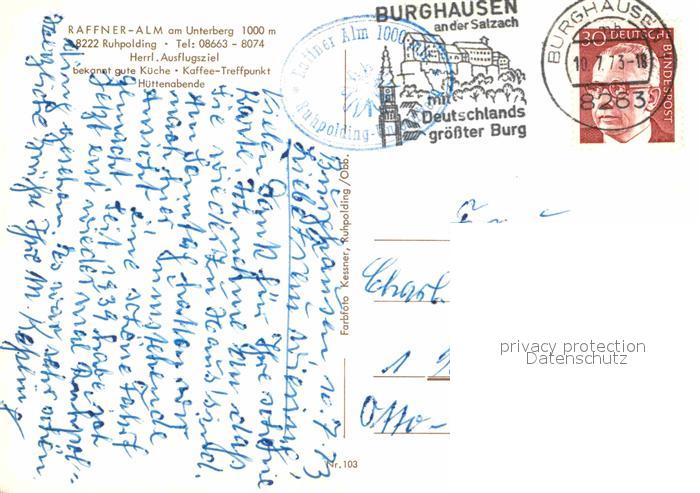 RAFFNER-ALM am Unterberg 1000 m
8222 Ruhpolding • Tel: 08663 - 8074
Herrl. Ausflugsziel
bekannt gute Küche • Kaffee-Treffpunkt
Hüttenabende
Raffner Alm 1000 m
Ruhpolding
BURGHAUSEN
an der Salzach
mit
Deutschlands
größter Burg
BURGHAUSEN
10.7.73-18
8263
30 DEUTSCHE BUNDESPOST
Burghausen 10.7.73
Vielen Dank für Ihre schöne
Karte. Ich nehme an, daß
Sie wieder zu Hause sind.
Am Sonntag hatten wir
nach hier
eine schöne Fahrt
gemacht. Seit 1934 habe ich
jetzt erst wieder mal Ruhpol-
ding gesehen. Es war sehr schön.
Herzliche Grüße Ihre M.
Farbfoto Kessner, Ruhpolding/Obb.
Nr. 103
Charl
1
Otto-
privacy protection
Datenschutz